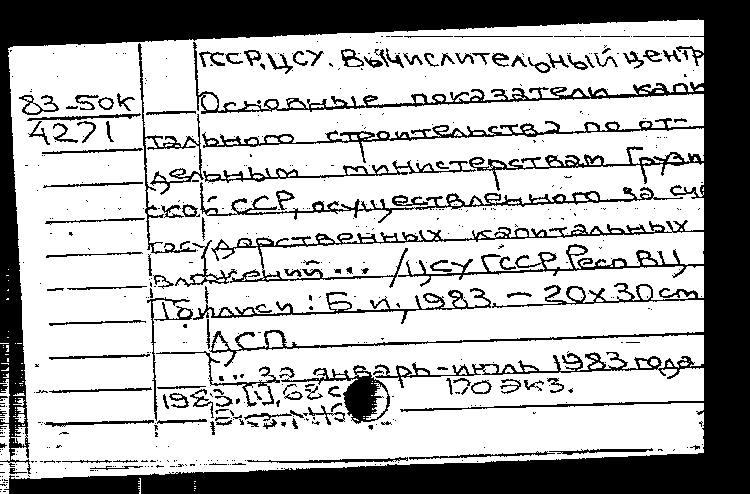 ГССР. ЦСУ. Вычислительный центр
83-50к
4271
Основные показатели капи
тального строительства по от-
дельным министерствам Грузин
ской ССР, осуществленного за сч
государственных капитальных
вложений... /ЦСУ ГССР, Респ ВЦ.
Тбилиси: Б.и., 1983. — 20х30см
ДСП.
... за январь-июль 1983 года.
1983. [1], 68 с 170 экз.
Экз. №